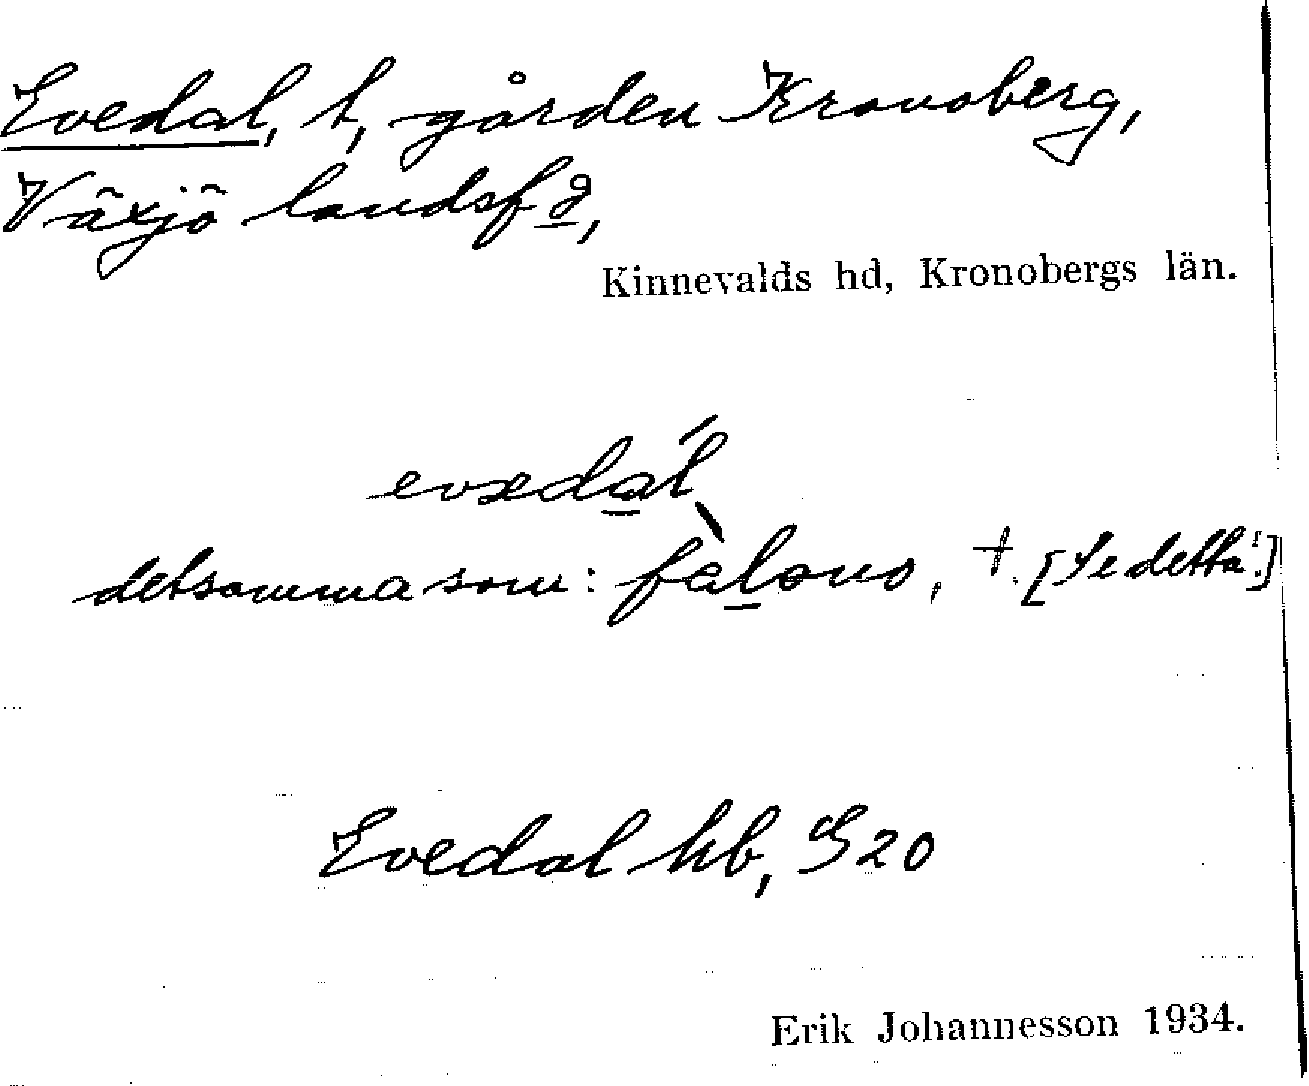 Evedal, t, gården Kronoberg,
Växjö landsf g,
Kinnevalds hd, Kronobergs län.
evædál
detsamma som: fàlono, t. [Se detta!]
Evedal hb, S20
Erik Johannesson 1934.